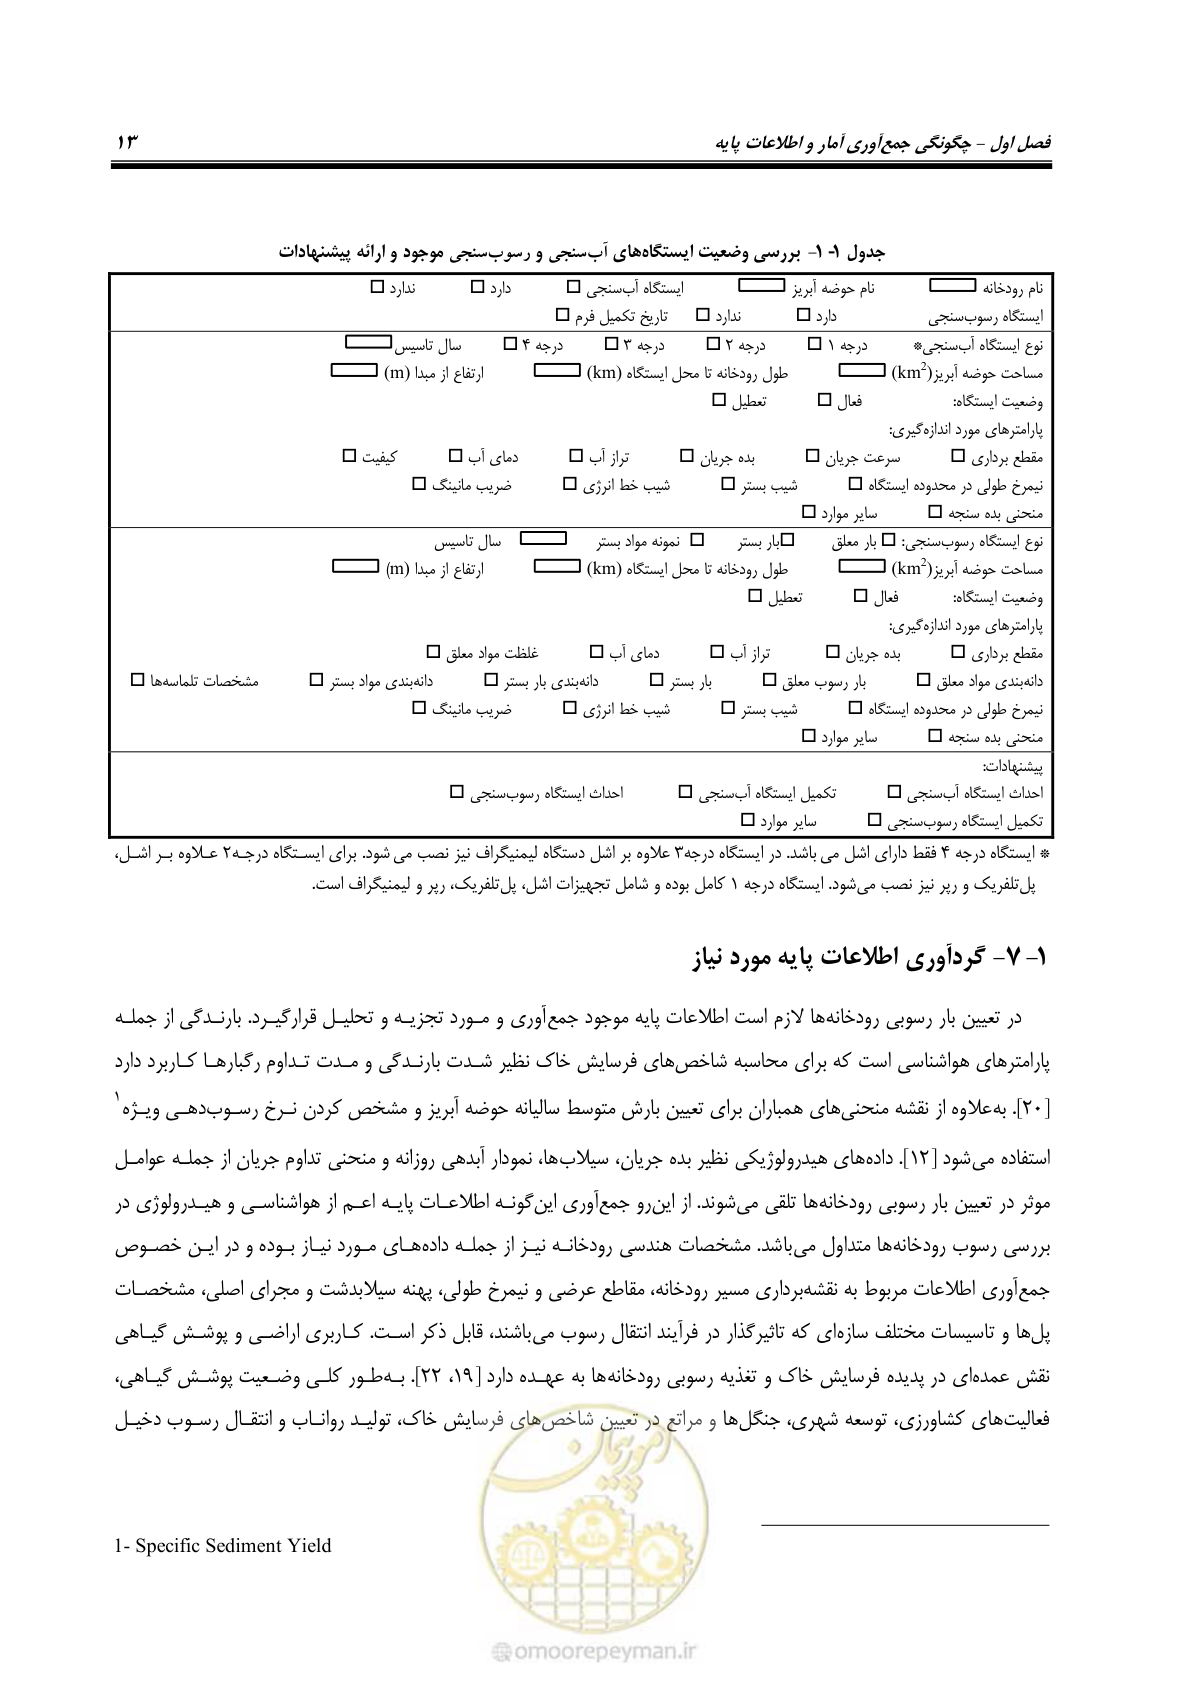 فصل اول – چگونگی جمع‌آوری آمار و اطلاعات پایه ۱۳
جدول ۱- ۱- بررسی وضعیت ایستگاه‌های آب‌سنجی و رسوب‌سنجی موجود و ارائه پیشنهادات
نام رودخانه نام حوضه آبریز ایستگاه آب‌سنجی □ دارد □ ندارد □
ایستگاه رسوب‌سنجی دارد □ ندارد □ تاریخ تکمیل فرم □
نوع ایستگاه آب‌سنجی* درجه ۱ □ درجه ۲ □ درجه ۳ □ درجه ۴ □ سال تاسیس
مساحت حوضه آبریز(km²) طول رودخانه تا محل ایستگاه (km) ارتفاع از مبدا (m)
وضعیت ایستگاه: فعال □ تعطیل □
پارامترهای مورد اندازه‌گیری:
مقطع برداری □ سرعت جریان □ بده جریان □ تراز آب □ دمای آب □ کیفیت □
نیمرخ طولی در محدوده ایستگاه □ شیب بستر □ شیب خط انرژی □ ضریب مانینگ □
منحنی بده سنجه □ سایر موارد □
نوع ایستگاه رسوب‌سنجی: □ بار معلق □بار بستر □ نمونه مواد بستر سال تاسیس
مساحت حوضه آبریز(km²) طول رودخانه تا محل ایستگاه (km) ارتفاع از مبدا (m)
وضعیت ایستگاه: فعال □ تعطیل □
پارامترهای مورد اندازه‌گیری:
مقطع برداری □ بده جریان □ تراز آب □ دمای آب □ غلظت مواد معلق □
دانه‌بندی مواد معلق □ بار رسوب معلق □ بار بستر □ دانه‌بندی بار بستر □ دانه‌بندی مواد بستر □ مشخصات تلماسه‌ها □
نیمرخ طولی در محدوده ایستگاه □ شیب بستر □ شیب خط انرژی □ ضریب مانینگ □
منحنی بده سنجه □ سایر موارد □
پیشنهادات:
احداث ایستگاه آب‌سنجی □ تکمیل ایستگاه آب‌سنجی □ احداث ایستگاه رسوب‌سنجی □
تکمیل ایستگاه رسوب‌سنجی □ سایر موارد □
* ایستگاه درجه ۴ فقط دارای اشل می باشد. در ایستگاه درجه۳ علاوه بر اشل دستگاه لیمنیگراف نیز نصب می شود. برای ایستگاه درجه۲ علاوه بر اشل،
پل‌تلفریک و رپر نیز نصب می‌شود. ایستگاه درجه ۱ کامل بوده و شامل تجهیزات اشل، پل‌تلفریک، رپر و لیمنیگراف است.
۱- ۷- گردآوری اطلاعات پایه مورد نیاز
در تعیین بار رسوبی رودخانه‌ها لازم است اطلاعات پایه موجود جمع‌آوری و مورد تجزیه و تحلیل قرارگیرد. بارندگی از جمله
پارامترهای هواشناسی است که برای محاسبه شاخص‌های فرسایش خاک نظیر شدت بارندگی و مدت تداوم رگبارها کاربرد دارد
[۲۰]. به‌علاوه از نقشه منحنی‌های همباران برای تعیین بارش متوسط سالیانه حوضه آبریز و مشخص کردن نرخ رسوب‌دهی ویژه۱
استفاده می‌شود [۱۲]. داده‌های هیدرولوژیکی نظیر بده جریان، سیلاب‌ها، نمودار آبدهی روزانه و منحنی تداوم جریان از جمله عوامل
موثر در تعیین بار رسوبی رودخانه‌ها تلقی می‌شوند. از این‌رو جمع‌آوری این‌گونه اطلاعات پایه اعم از هواشناسی و هیدرولوژی در
بررسی رسوب رودخانه‌ها متداول می‌باشد. مشخصات هندسی رودخانه نیز از جمله داده‌های مورد نیاز بوده و در این خصوص
جمع‌آوری اطلاعات مربوط به نقشه‌برداری مسیر رودخانه، مقاطع عرضی و نیمرخ طولی، پهنه سیلابدشت و مجرای اصلی، مشخصات
پل‌ها و تاسیسات مختلف سازه‌ای که تاثیرگذار در فرآیند انتقال رسوب می‌باشند، قابل ذکر است. کاربری اراضی و پوشش گیاهی
نقش عمده‌ای در پدیده فرسایش خاک و تغذیه رسوبی رودخانه‌ها به عهده دارد [۱۹، ۲۲]. به‌طور کلی وضعیت پوشش گیاهی،
فعالیت‌های کشاورزی، توسعه شهری، جنگل‌ها و مراتع در تعیین شاخص‌های فرسایش خاک، تولید رواناب و انتقال رسوب دخیل
1- Specific Sediment Yield
امور پیمان
@omoorepeyman.ir